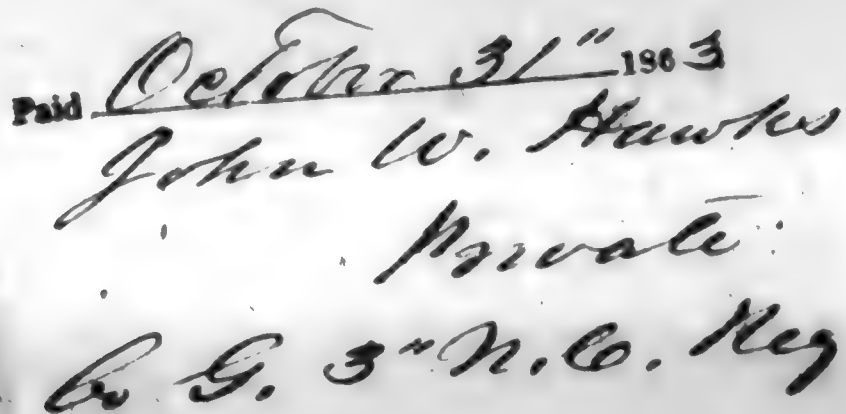 Paid October 31" 1863
John W. Hawks
Private
Co G. 3" N.C. Reg